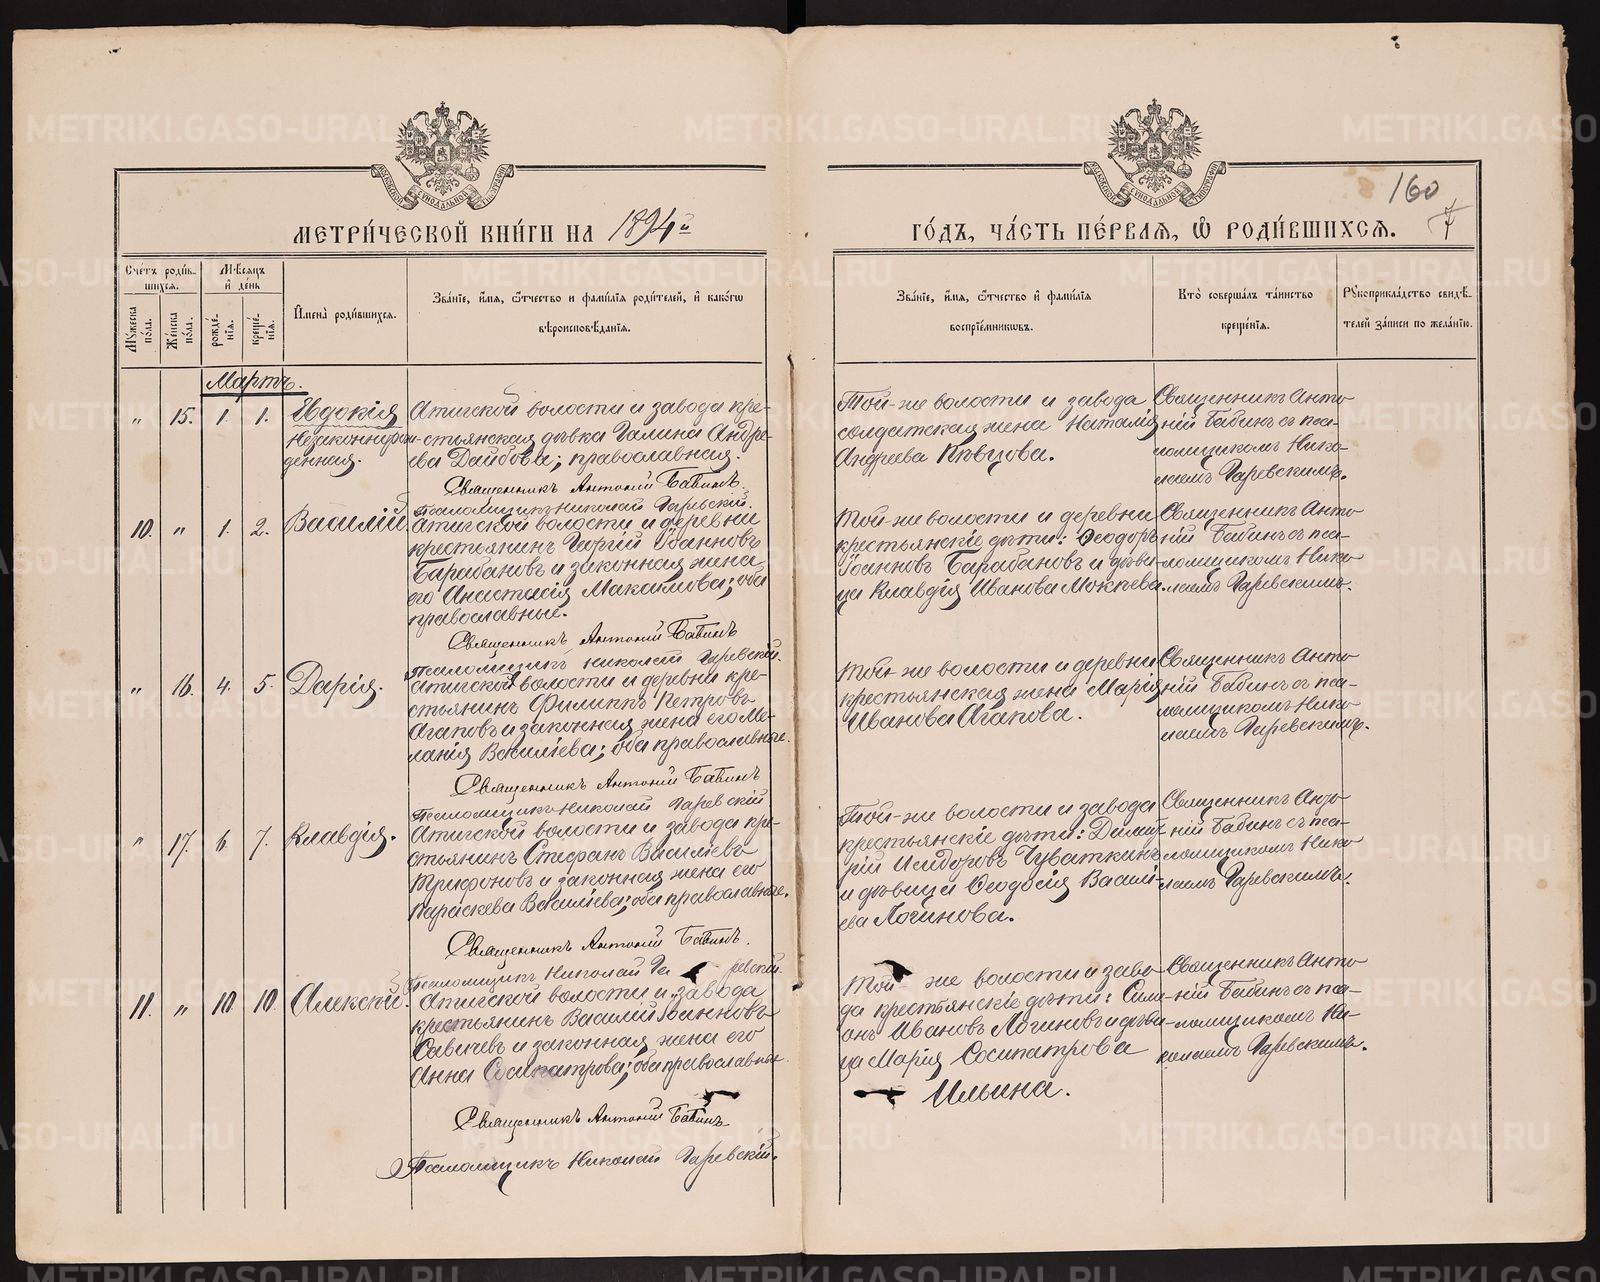 METRIKI.GASO-URAL.RU
160
7
МЕТРИ́ЧЕСКОЙ КНИ́ГИ НА 1894й
ГО́ДЪ, ЧА́СТЬ ПЕ́РВАѦ, Ѿ РОДИ́ВШИХСѦ.
Сче́тъ роди́в-
шихсѧ.
Мꙋ́жеска по́ла.
Же́нска по́ла.
Мѣ́сѧцъ
и҆ де́нь
рожде́-
нїѧ.
креще́-
нїѧ.
И҆мена̀ роди́вшихсѧ.
Зва́нїе, и҆́мѧ, ѻ҆́тчество и҆ фами́лїѧ роди́телей, и҆ како́гѡ
вѣроисповѣ́данїѧ.
Зва́нїе, и҆́мѧ, ѻ҆́тчество и҆ фами́лїѧ
воспрїе́мникѡвъ.
Кто̀ соверша́лъ та́инство
креще́нїѧ.
Рꙋкоприкла́дство свидѣ́-
телей за́писи по жела́нїю.
Мартъ.
„ 15. 1. 1. Евдокія
незаконнорож-
денная.
Атигской волости и завода кре-
стьянская дѣвка Галина Андре-
ева Дайбова; православная.
Священникъ Антоній Бабинъ.
Псаломщикъ Николай Гаревскій.
Той-же волости и завода
солдатская жена Наталія
Андреева Пѣвцова.
Священникъ Анто-
ній Бабинъ съ пса-
ломщикомъ Нико-
лаемъ Гаревскимъ.
10. „ 1. 2. Василій
Атигской волости и деревни
крестьянинъ Георгій Іоанновъ
Барабановъ и законная жена
его Анастасія Максимова; оба
православные.
Священникъ Антоній Бабинъ
Псаломщикъ Николай Гаревскій.
Той-же волости и деревни
крестьянскіе дѣти: Ѳеодоръ
Іоанновъ Барабановъ и дѣви-
ца Клавдія Иванова Мокѣева.
Священникъ Анто-
ній Бабинъ съ пса-
ломщикомъ Нико-
лаемъ Гаревскимъ.
„ 16. 4. 5. Дарія.
Атигской волости и деревни кре-
стьянинъ Филиппъ Петровъ
Агаповъ и законная жена его Ме-
ланія Василіева; оба православные.
Священникъ Антоній Бабинъ
Псаломщикъ Николай Гаревскій
Той-же волости и деревни
крестьянская жена Марія
Иванова Агапова.
Священникъ Анто-
ній Бабинъ съ пса-
ломщикомъ Нико-
лаемъ Гаревскимъ.
„ 17. 6. 7. Клавдія.
Атигской волости и завода кре-
стьянинъ Стефанъ Василіевъ
Трифоновъ и законная жена его
Параскева Василіева; оба православные.
Священникъ Антоній Бабинъ.
Псаломщикъ Николай Гаревскій.
Той-же волости и завода
крестьянскіе дѣти: Дими-
трій Исидоровъ Чуваткинъ
и дѣвица Ѳеодосія Васили-
ева Логинова.
Священникъ Анто-
ній Бабинъ съ пса-
ломщикомъ Нико-
лаемъ Гаревскимъ.
11. „ 10. 10. Алексѣй.
Атигской волости и завода
крестьянинъ Василій Іоанновъ
Савичевъ и законная жена его
Анна Сосипатрова; оба православные.
Священникъ Антоній Бабинъ
Псаломщикъ Николай Гаревскій.
Той же волости и заво-
да крестьянскіе дѣти: Симе-
онъ Ивановъ Логиновъ и дѣви-
ца Марія Сосипатрова
Ильина.
Священникъ Анто-
ній Бабинъ съ пса-
ломщикомъ Ни-
колаемъ Гаревскимъ.